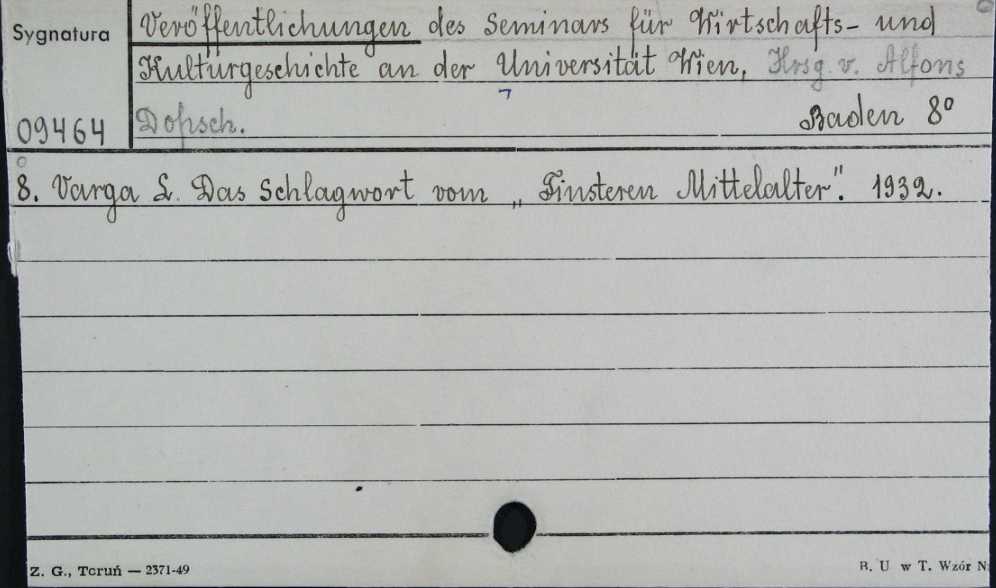 Sygnatura
Veröffentlichungen des Seminars für Wirtschafts- und
Kulturgeschichte an der Universität Wien, Hrsg. v. Alfons
09464
Dopsch.
Baden 8º
8. Varga L. Das Schlagwort vom „Finsteren Mittelalter". 1932.
Z. G., Toruń — 2371-49
B. U w T. Wzór N